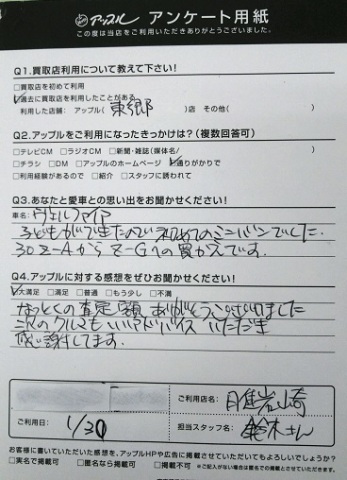 アップル アンケート用紙
この度は当店をご利用いただきありがとうございました。
Q1.買取店利用について教えて下さい!
□買取店を初めて利用
☑過去に買取店を利用したことがある
利用した店舗: アップル( 東郷 )店 その他( )
Q2.アップルをご利用になったきっかけは?(複数回答可)
□テレビCM □ラジオCM □新聞・雑誌(媒体名/ )
□チラシ □DM □アップルのホームページ ☑通りがかりで
□利用経験があるので □紹介 □スタッフに誘われて
Q3.あなたと愛車との思い出をお聞かせください!
車名: ヴェルファイア
子どもができたので初めてのミニバンでした。
30 Z-AからZ-Gへの買かえです。
Q4.アップルに対する感想をぜひお聞かせください!
☑大満足 □満足 □普通 □もう少し □不満
なっとくの査定額ありがとうございました
次のクルマもいいアドバイスいただき
感謝してます。
ご利用店名: 日進岩崎
ご利用日: 1/30
担当スタッフ名: 鈴木さん
お客様に書いていただいた感想を、アップルHPや広告に掲載させていただいてもよろしいでしょうか?
□実名で掲載可 □匿名なら掲載可 □掲載不可 ※ご記入がない場合は匿名での掲載とさせていただきます。